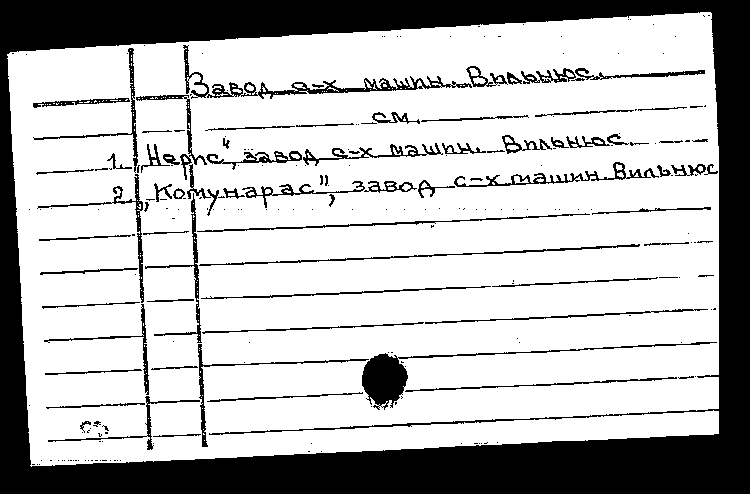 Завод с-х машин. Вильнюс.
см.
1. „Нерис", завод с-х машин. Вильнюс.
2. „Комунарас", завод с-х машин. Вильнюс